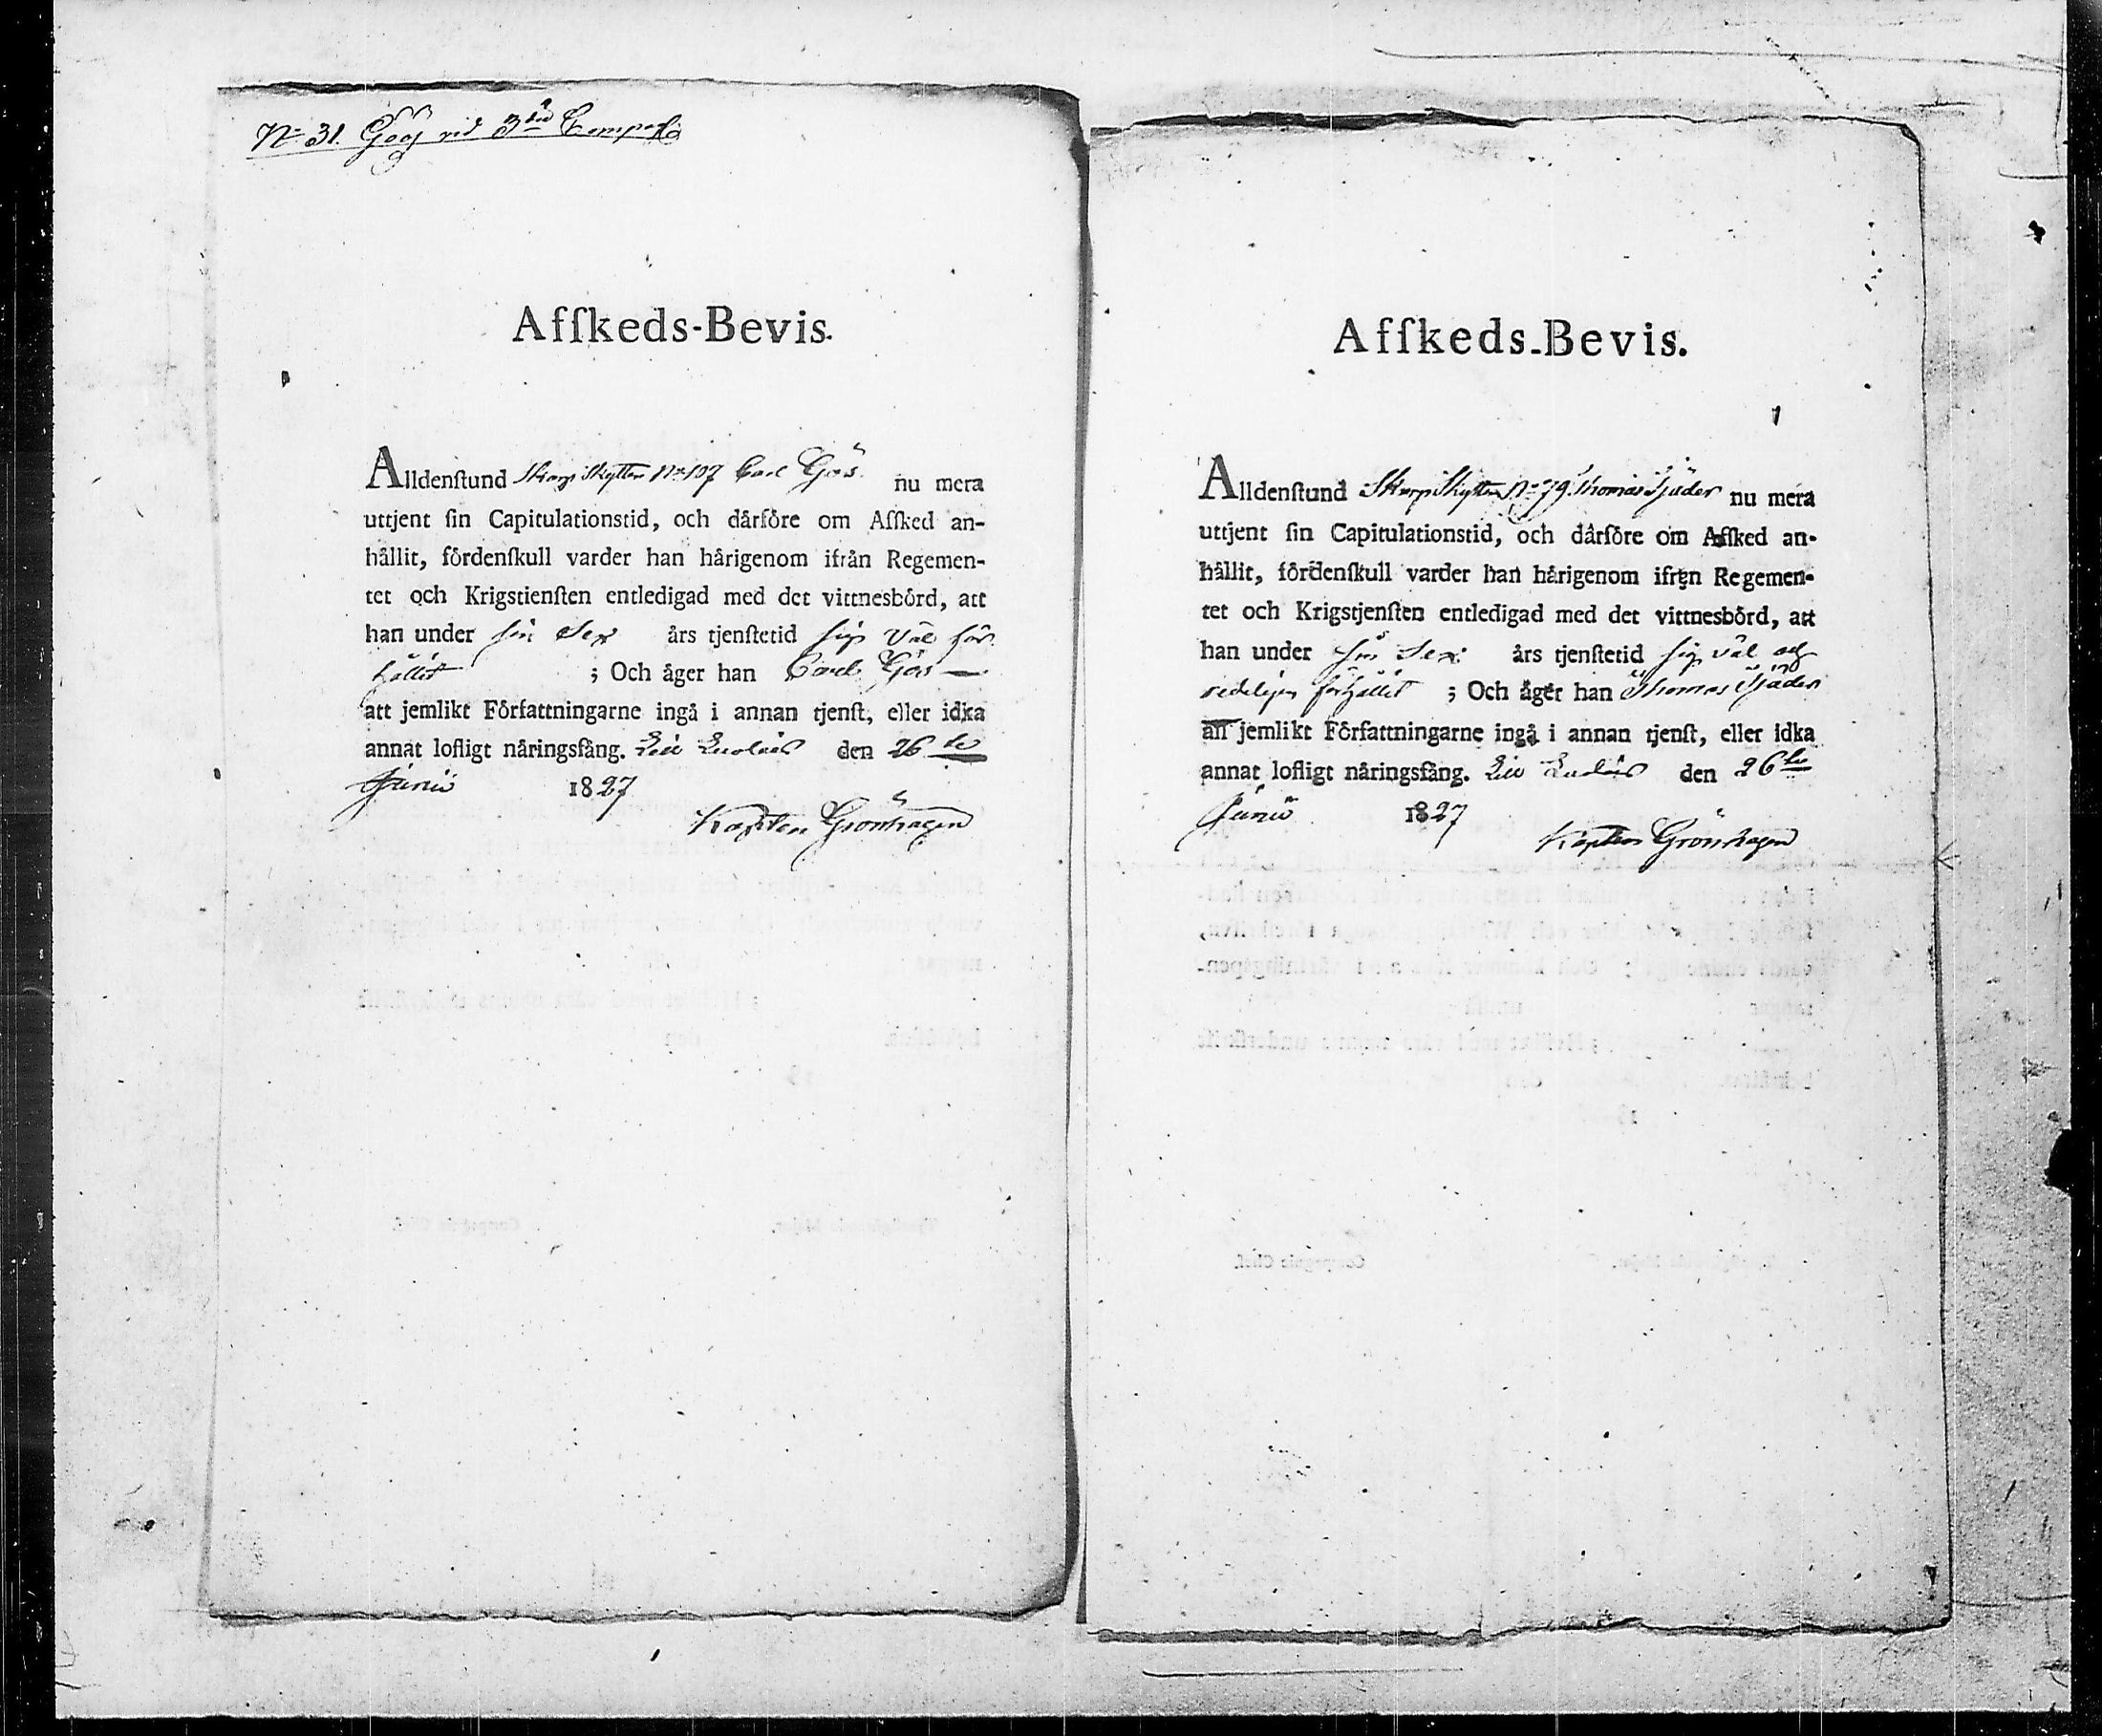 No 31. Göös vid 3die Compag
Afſkeds-Bevis.
Alldenſtund Skarp Skytten No 107 Carl Göös nu mera
uttjent ſin Capitulationstid, och dårföre om Afſked an-
hållit, fördenſkull varder han hårigenom ifrån Regemen-
tet och Krigstienſten entledigad med det vittnesbörd, att
han under sin Sex års tjenſtetid sig väl för
hållit ; Och åger han Carl Göös
att jemlikt Författningarne ingå i annan tjenſt, eller idka
annat lofligt nåringsfång. den 26te
Junii 1827
Kapten Grönhagen
Afſkeds-Bevis.
Alldenſtund Skarp Skytten No 79 Thomas Sjäder nu mera
uttjent ſin Capitulationstid, och dårföre om Afſked an-
hållit, fördenſkull varder han hårigenom ifrån Regemen-
tet och Krigstjenſten entledigad med det vittnesbörd, att
han under sin Sex års tjenſtetid sig väl och
redeligen förhållit ; Och åger han Thomas Sjäder
att jemlikt Författningarne ingå i annan tjenſt, eller idka
annat lofligt nåringsfång. den 26te
Junii 1827
Kapten Grönhagen